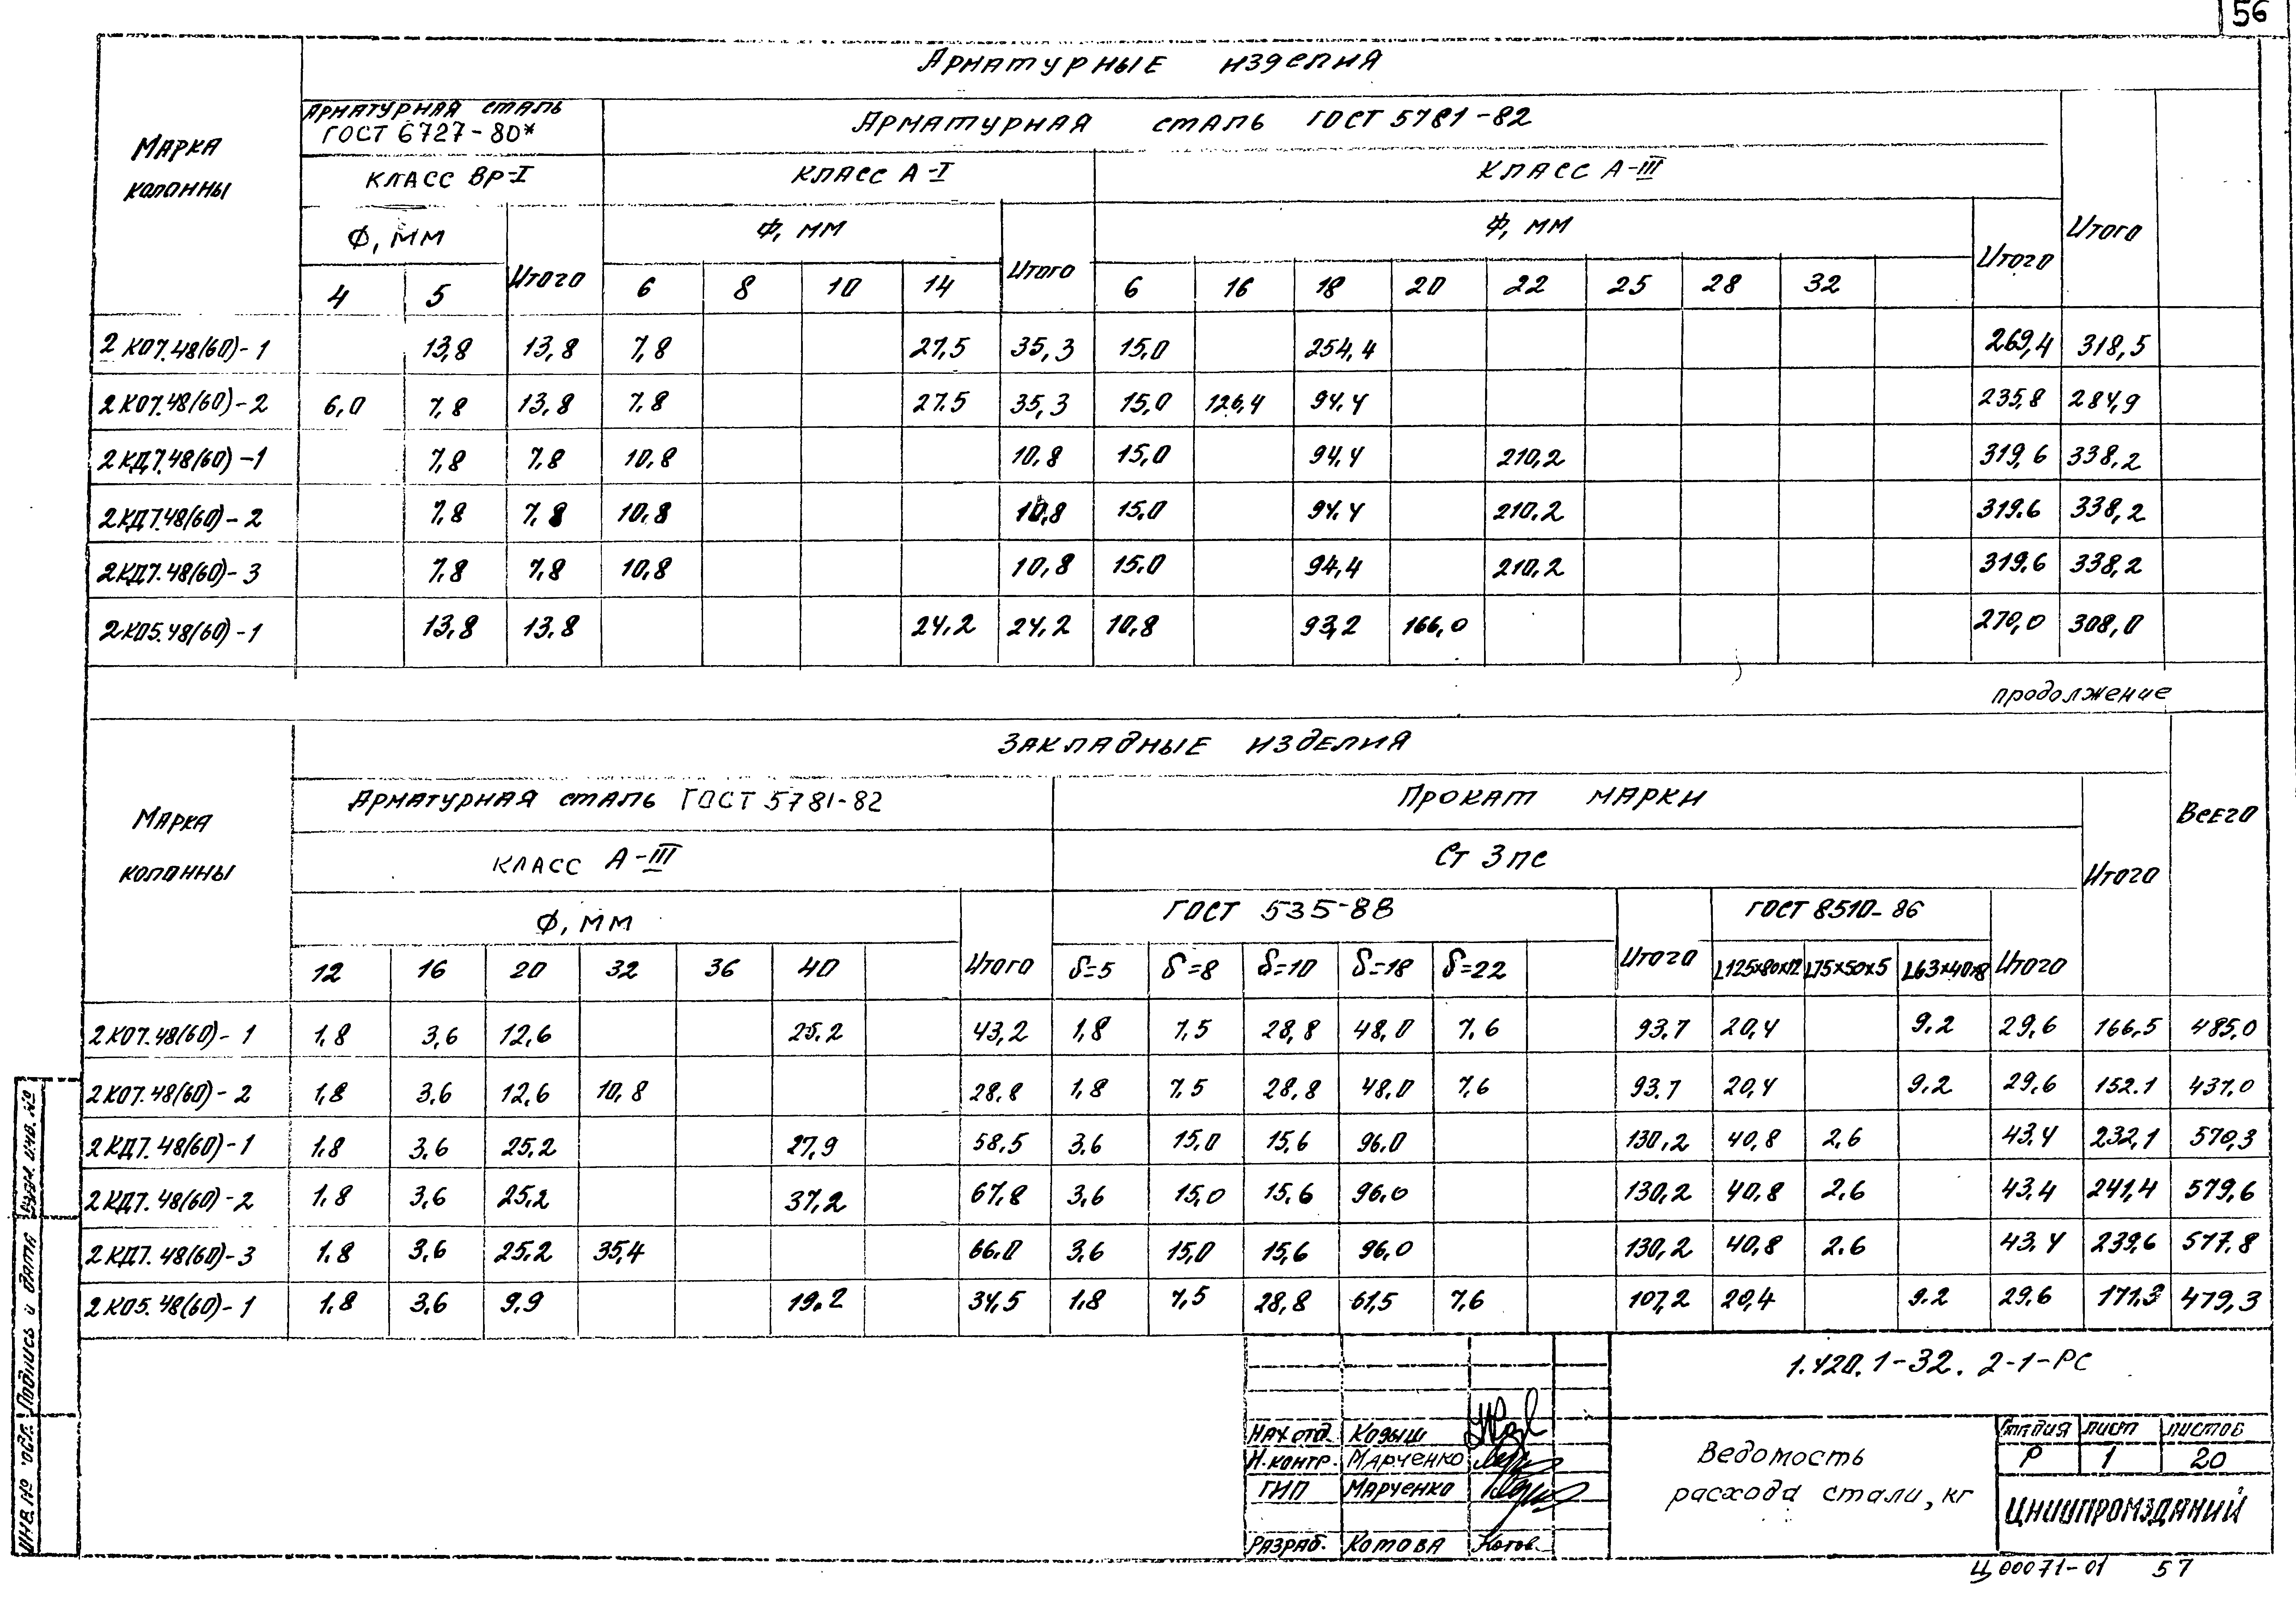 56
Арматурные изделия
Марка колонны
Арматурная сталь ГОСТ 6727-80*
Арматурная сталь ГОСТ 5781-82
Итого
класс Вр-I
класс А-I
класс А-III
Ф, мм
Итого
Ф, мм
Итого
Ф, мм
Итого
4 5 6 8 10 14 6 16 18 20 22 25 28 32
2К07.48(60)-1 13,8 13,8 7,8 27,5 35,3 15,0 254,4 269,4 318,5
2К07.48(60)-2 6,0 7,8 13,8 7,8 27.5 35,3 15,0 126,4 94.4 235,8 284,9
2КД7.48(60)-1 7,8 7,8 10,8 10,8 15,0 94.4 210,2 319,6 338,2
2КД7.48(60)-2 7,8 7,8 10,8 10,8 15.0 94.4 210.2 319.6 338,2
2КД7.48(60)-3 7,8 7,8 10,8 10,8 15.0 94,4 210,2 319.6 338,2
2К05.48(60)-1 13,8 13,8 24,2 24,2 10,8 93,2 166,0 270,0 308,0
продолжение
Закладные изделия
Марка колонны
Арматурная сталь ГОСТ 5781-82
Прокат марки
Итого
Всего
класс А-III
Ст 3пс
Ф, мм
Итого
ГОСТ 535-88
Итого
ГОСТ 8510-86
Итого
12 16 20 32 36 40 δ=5 δ=8 δ=10 δ=18 δ=22 L125х80х12 L75х50х5 L63х40х8
2К07.48(60)-1 1,8 3,6 12,6 25,2 43,2 1,8 7,5 28,8 48,0 7,6 93.7 20,4 9.2 29,6 166,5 485,0
2К07.48(60)-2 1,8 3,6 12,6 10,8 28,8 1,8 7,5 28,8 48,0 7,6 93.7 20,4 9.2 29,6 152.1 437,0
2КД7.48(60)-1 1.8 3.6 25,2 27,9 58,5 3,6 15,0 15,6 96.0 130,2 40,8 2,6 43,4 232,1 570,3
2КД7.48(60)-2 1,8 3,6 25,2 37,2 67,8 3,6 15,0 15,6 96,0 130,2 40,8 2,6 43,4 241,4 579,6
2КД7.48(60)-3 1.8 3,6 25,2 35,4 66.0 3,6 15,0 15,6 96,0 130,2 40,8 2.6 43,4 239,6 577,8
2К05.48(60)-1 1,8 3,6 9.9 19.2 34,5 1.8 7,5 28,8 61,5 7,6 107,2 20,4 9.2 29,6 171,3 479,3
1.420.1-32. 2-1-РС
Нач отд. Кодыш
Н.контр. Марченко
ГИП Марченко
Разраб. Котова Котов
Ведомость
расхода стали, кг
Стадия лист листов
Р 1 20
ЦНИИПРОМЗДАНИЙ
Ц00071-01 57
Инв. №
Подпись и дата
взам. инв. №